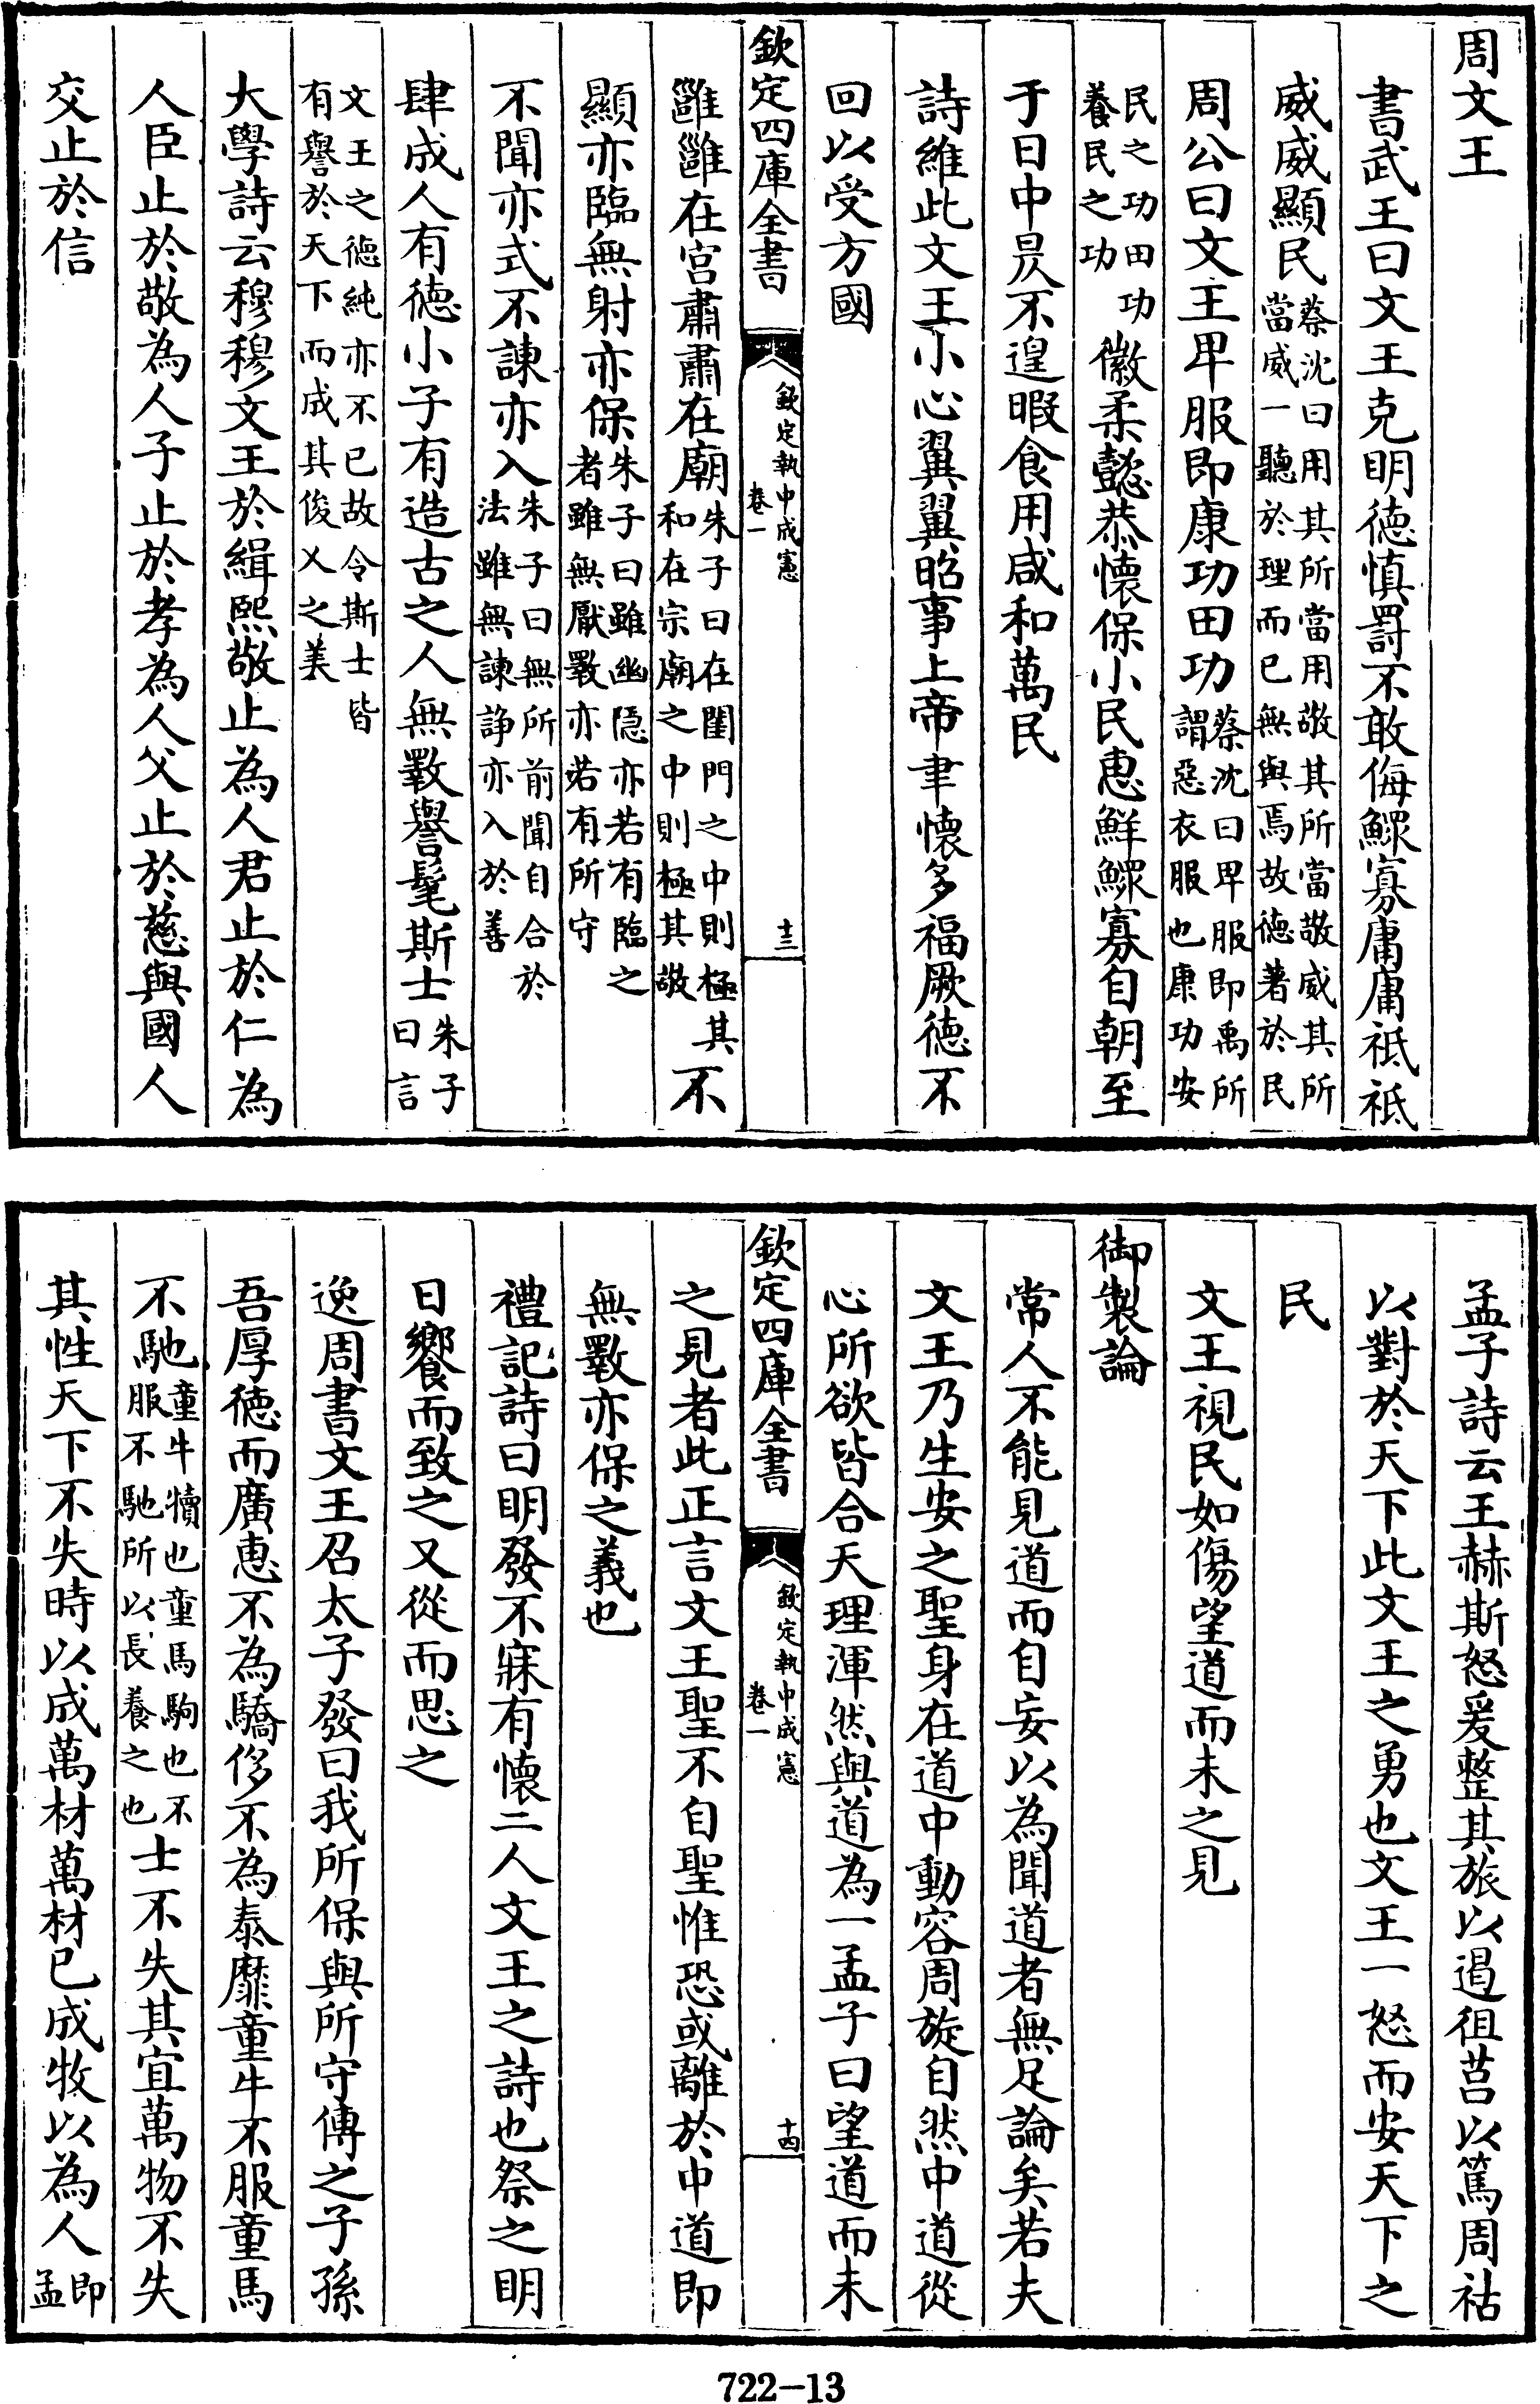 周文王
書武王曰文王克明德慎罰不敢侮鰥寡庸庸祗祗
威威顯民蔡沈曰用其所當用敬其所當敬威其所
當威一聽於理而已無與焉故德著於民
周公曰文王卑服即康功田功蔡沈曰卑服即禹所
謂惡衣服也康功安
民之功田功
養民之功
徽柔懿恭懷保小民惠鮮鰥寡自朝至
于日中昃不遑暇食用咸和萬民
詩維此文王小心翼翼昭事上帝聿懷多福厥德不
回以受方國
欽定四庫全書
欽定執中成憲
卷一
十三
雝雝在宮肅肅在廟朱子曰在閨門之中則極其
和在宗廟之中則極其敬
不
顯亦臨無射亦保朱子曰雖幽隱亦若有臨之
者雖無厭斁亦若有所守
不聞亦式不諫亦入朱子曰無所前聞自合於
法雖無諫諍亦入於善
肆成人有德小子有造古之人無斁譽髦斯士朱子
曰言
文王之德純亦不已故令斯士皆
有譽於天下而成其俊乂之美
大學詩云穆穆文王於緝熙敬止為人君止於仁為
人臣止於敬為人子止於孝為人父止於慈與國人
交止於信
孟子詩云王赫斯怒爰整其旅以遏徂莒以篤周祜
以對於天下此文王之勇也文王一怒而安天下之
民
文王視民如傷望道而未之見
御製論
常人不能見道而自妄以為聞道者無足論矣若夫
文王乃生安之聖身在道中動容周旋自然中道從
心所欲皆合天理渾然與道為一孟子曰望道而未
欽定四庫全書
欽定執中成憲
卷一
十四
之見者此正言文王聖不自聖惟恐或離於中道即
無斁亦保之義也
禮記詩曰明發不寐有懷二人文王之詩也祭之明
日饗而致之又從而思之
逸周書文王召太子發曰我所保與所守傳之子孫
吾厚德而廣惠不為驕侈不為泰靡童牛不服童馬
不馳童牛犢也童馬駒也不
服不馳所以長養之也
士不失其宜萬物不失
其性天下不失時以成萬材萬材已成牧以為人即
孟
722-13